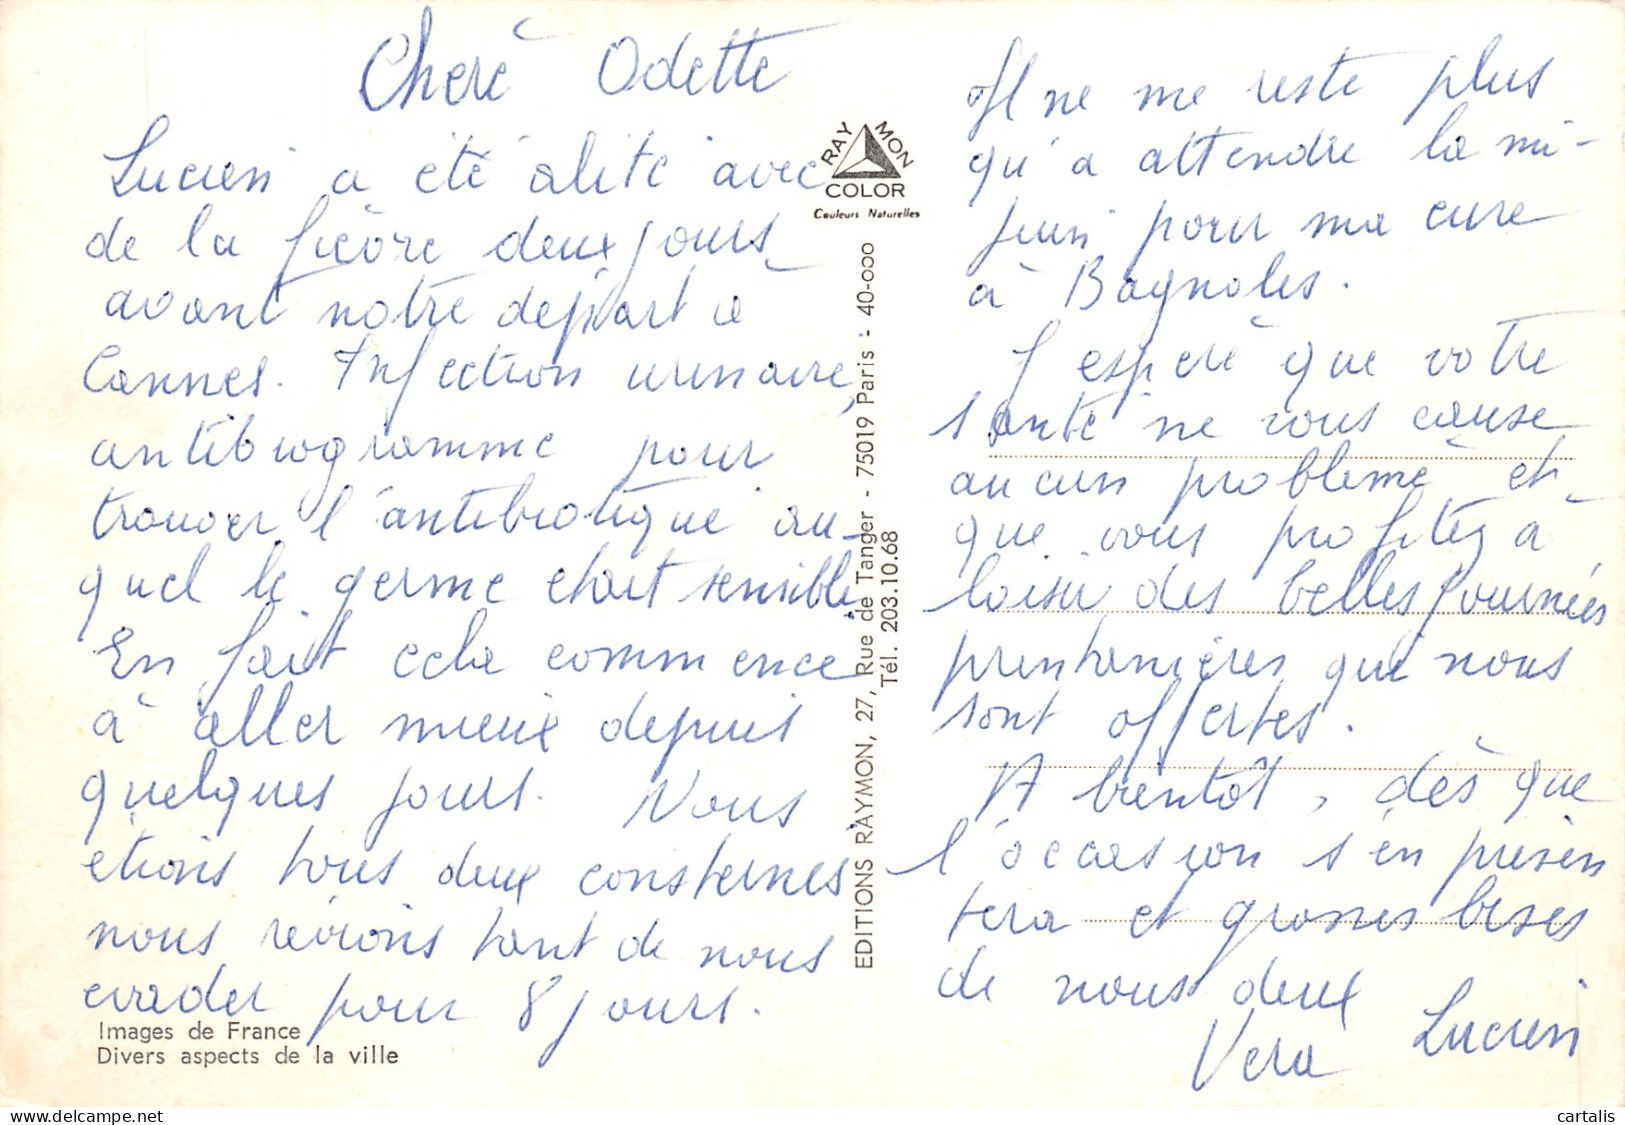 Chère Odette
Lucien a été alité avec
de la fièvre deux jours
avant notre départ à
Cannes. Infection urinaire,
antibiogramme pour
trouver l'antibiotique au-
quel le germe était sensible
En fait cela commence
à aller mieux depuis
quelques jours. Nous
étions tous deux consternés
nous rêvions tant de nous
evader pour 8 jours.
Images de France
Divers aspects de la ville
RAYMON
COLOR
Couleurs Naturelles
EDITIONS RAYMON, 27, Rue de Tanger - 75019 Paris - 40-000
Tél. 203.10.68
Il ne me reste plus
qu'à attendre la mi-
juin pour ma cure
à Bagnoles.
J'espère que votre
santé ne vous cause
aucun problème et
que vous profitez à
loisir des belles journées
printanières qui nous
sont offertes.
A bientôt, dès que
l'occasion s'en présen
tera et grosses bises
de nous deux
Vera Lucien
cartalis